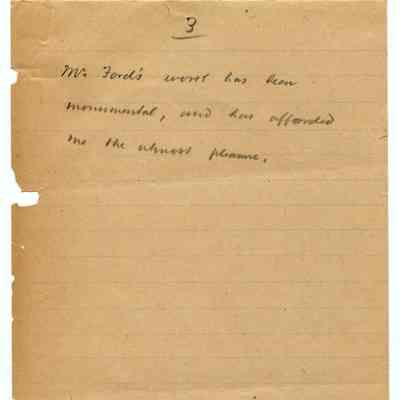 3
Mr. Ford's worst has been
monumental, and has afforded
me the utmost pleasure.